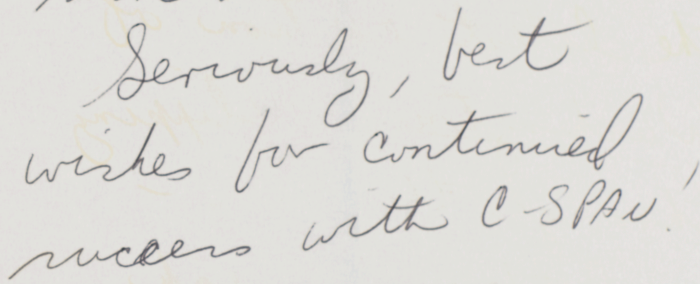 Seriously, best
wishes for continued
success with C-SPAN!